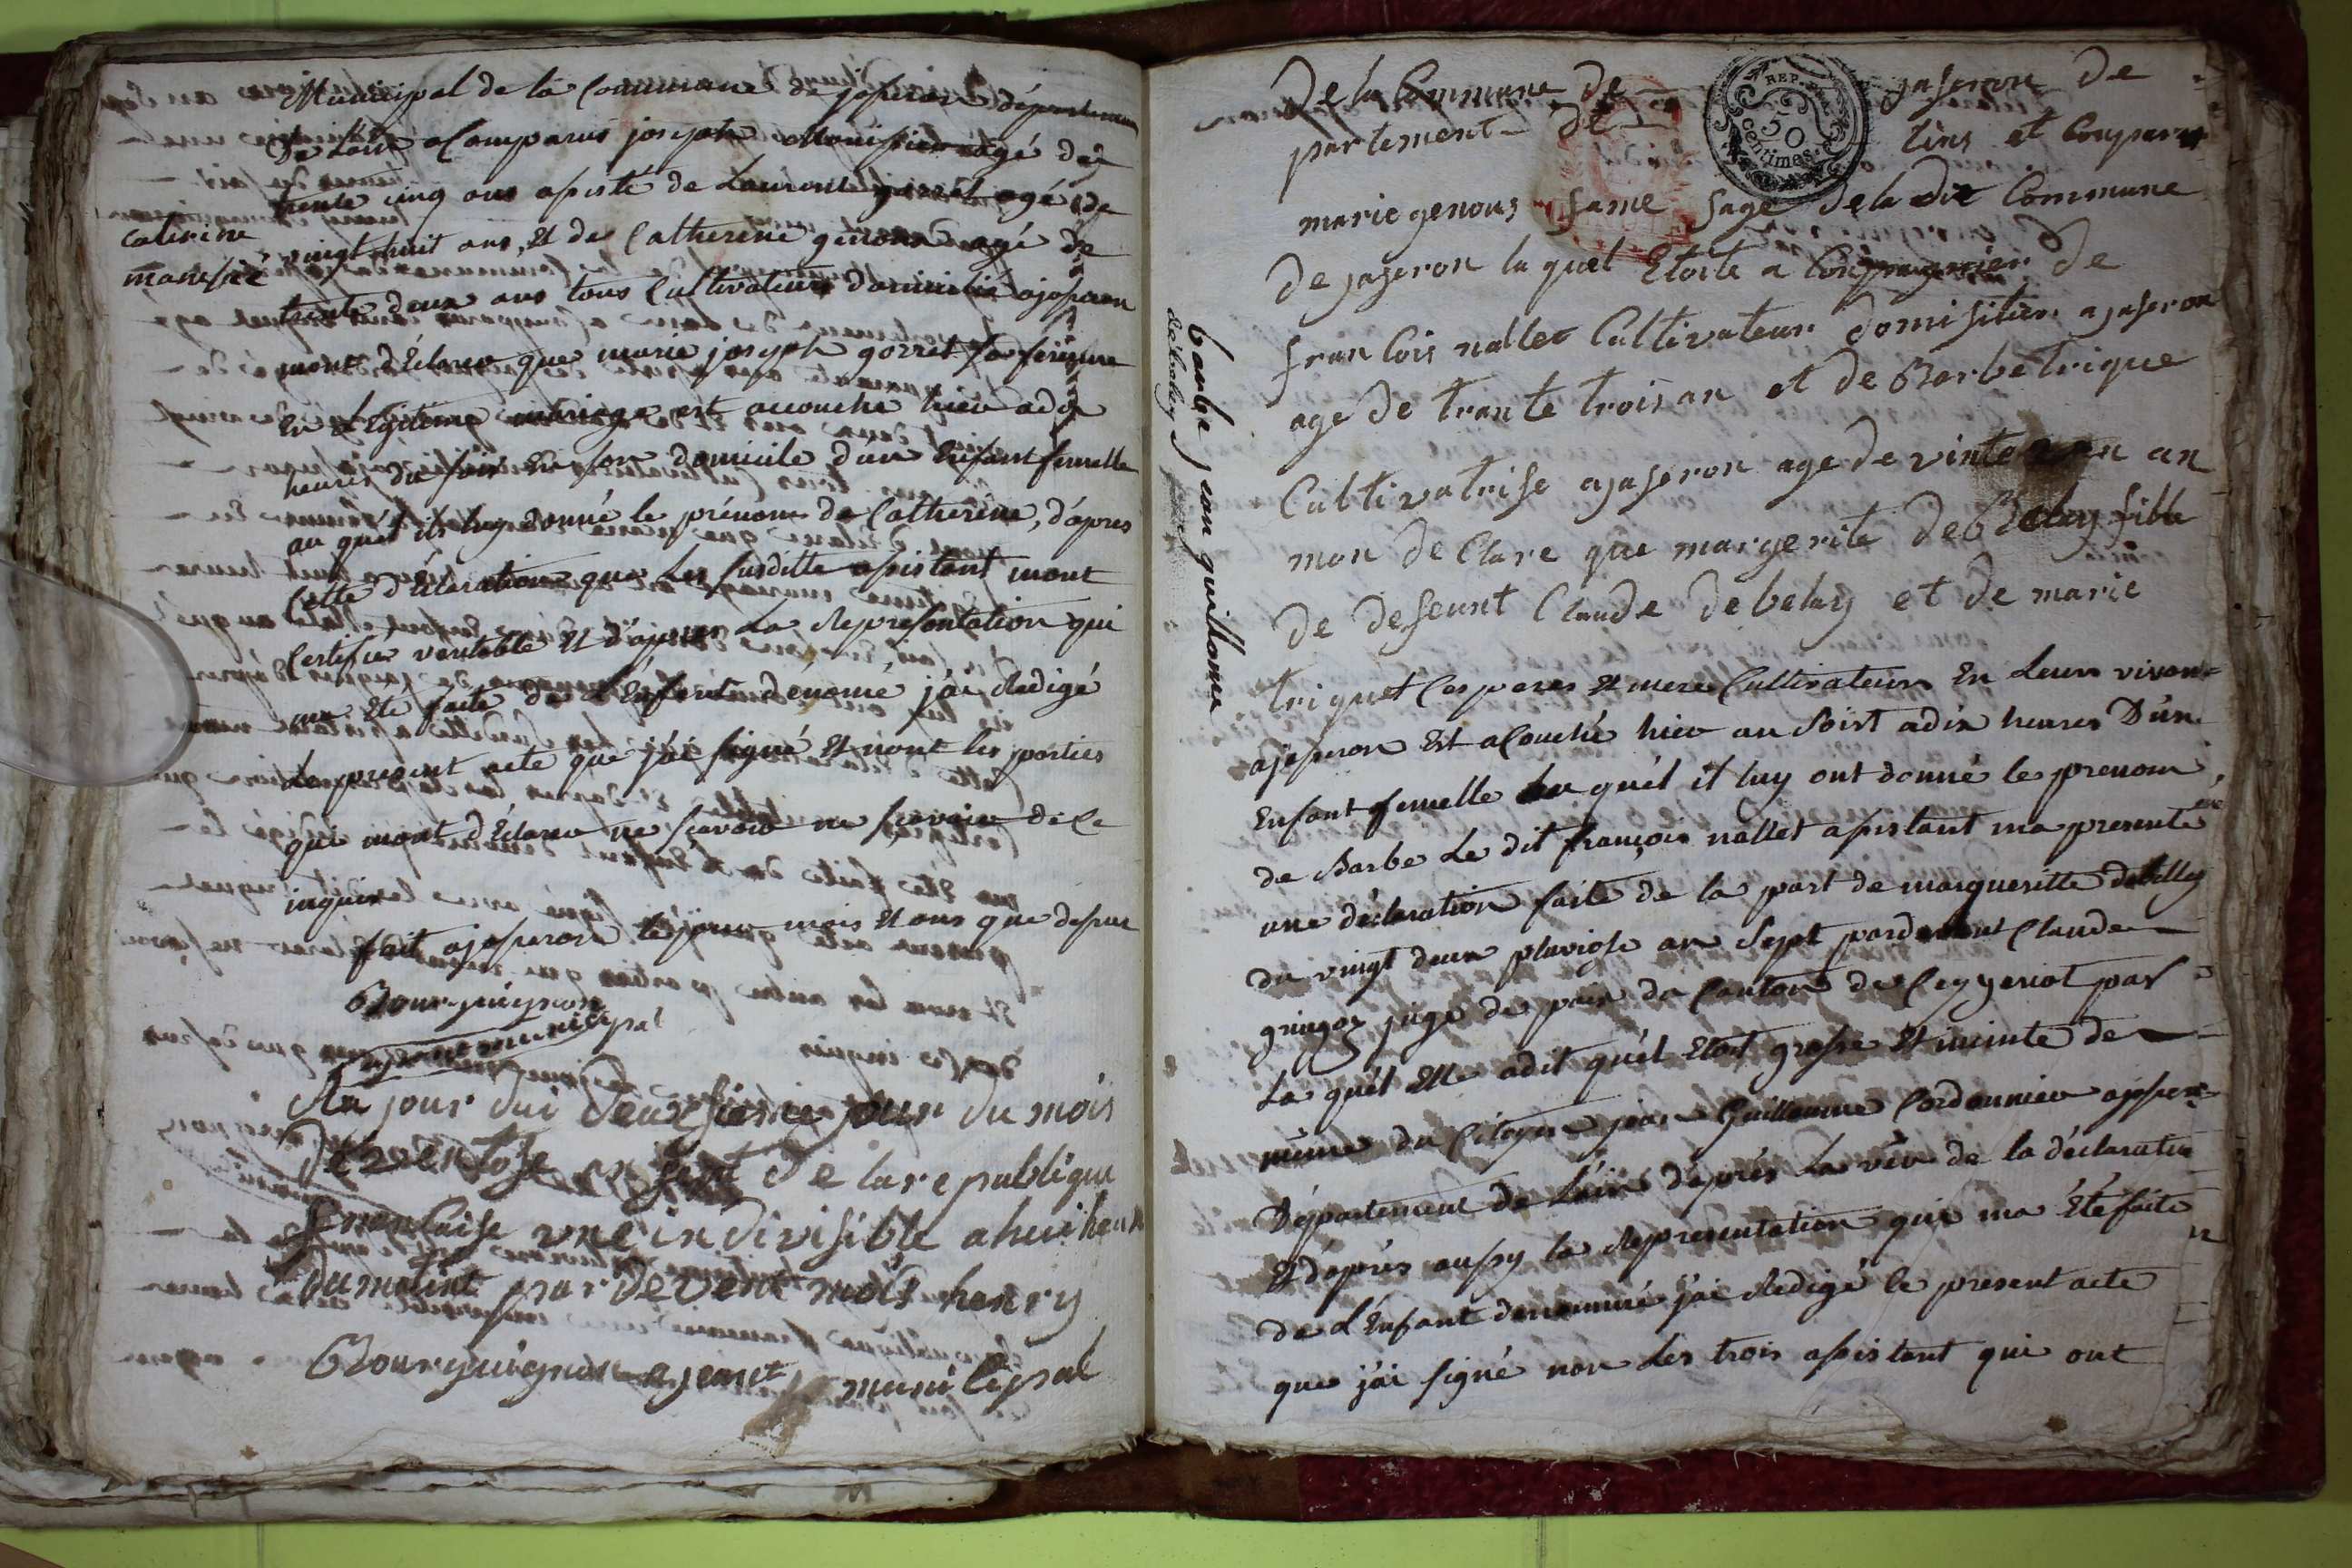 Municipal de la Commune de jasseron département
De Lain a Comparus joseph Monissier agé de
trente cinq ans asisté de Laurent gorret agé de
Caterine
manissié
vingt huit ans, Et de Catherine genons agé de
trente deux ans tous Cultivateurs domicilié ajasseron
mont déclarer que marie joseph gorret sa feme
En Légitime mariage est accouché hier a dix
heures du soir En son domicile d'un Enfant femelle
au quel ils luy donné le prénom de Catherine, d'apres
Cette déclaration que Les susditte asistant mont
Certifier veritable Et d'apres La Representation qui
ma Eté faite de L'Enfent dénomé j'ai Redigé
Le present acte que j'ai signé Et nont les parties
qui mont déclarer ne sçavoir de Ce
inquis
fait ajasseron le jour mois Et ans que desus
Bourguignon
agent municipal
Au jour dui deuxsieme jour du mois
De ventose an sept de la republique
francaise une indivisible a hui heur
du matint par devent mois henry
Bourguignon agent municipal
De la Commune de jaseron De
partement de lins et Comparu
marie genous fame sage dela dite Commune
De jaseron la quel Etoite a Conpagnier De
francois nallet Cultivateur domisilier ajaseron
age de trante trois an et de Barbe trique
Cultivatrise ajaseron age de vinte an
mon de Clare que margerite deBelay fille
De defeunt Claude debelay et de marie
triquet Ces peres Et mere Cultivateurs En Leurs vivant
ajasseron Est acouché hier au Soirt adix heures D'un
Enfant femelle quel il luy ont donné le prenom
de Barbe Le dit françois nallet asistant ma presenté
une déclaration faite de la part de marguerite debelley
du vingt deux pluviose an Sept pardevant Claude
gringoz juge de paix du Canton de Ceyzeriat par
La quel Elle a dit quel Etoit grosse Et incinte de
du Citoyen jean Guillaume Cordonnier ajasseron
Département de Lain d'aprés La vüe de la déclaration
Et d'aprés aussy la Representation qui ma Eté faite
de L'Enfant denommé j'ai Redigé le present acte
que j'ai signé non Les trois asistant qui ont
barbe jean guillaume
debeley
REP. FRA.
50
centimes